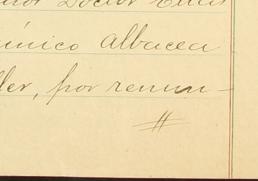 Doctor
único albacea
ller, por renun-